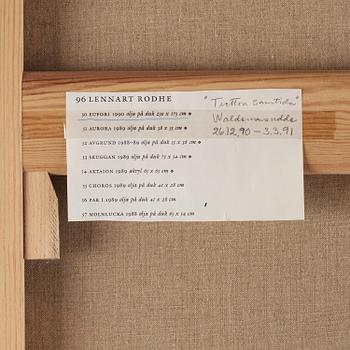 96 LENNART RODHE
30 EUFORI 1990 olja på duk 230 x 275 cm
31 AURORA 1989 olja på duk 38 x 55 cm
32 AVGRUND 1988–89 olja på duk 55 x 38 cm
33 SKUGGAN 1989 olja på duk 73 x 54 cm
34 AKTAION 1989 akryl 65 x 65 cm
35 CHOROS 1989 olja på duk 41 x 28 cm
36 PAR I 1989 olja på duk 41 x 28 cm
37 MOLNLUCKA 1988 olja på duk 65 x 54 cm
"Tretton samtida"
Waldemarsudde
26.12.90 – 3.3.91